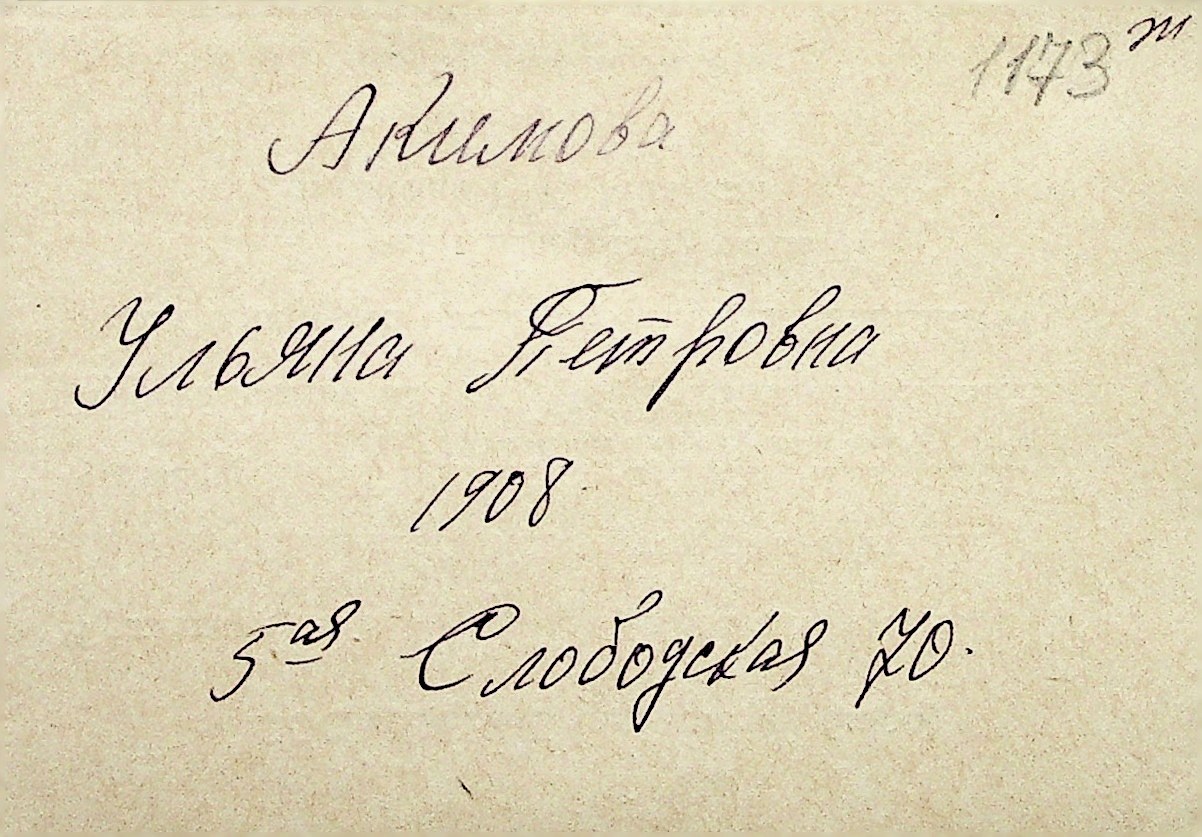 1173 т
Акимова
Ульяна Петровна
1908
5ая Слободская 70.